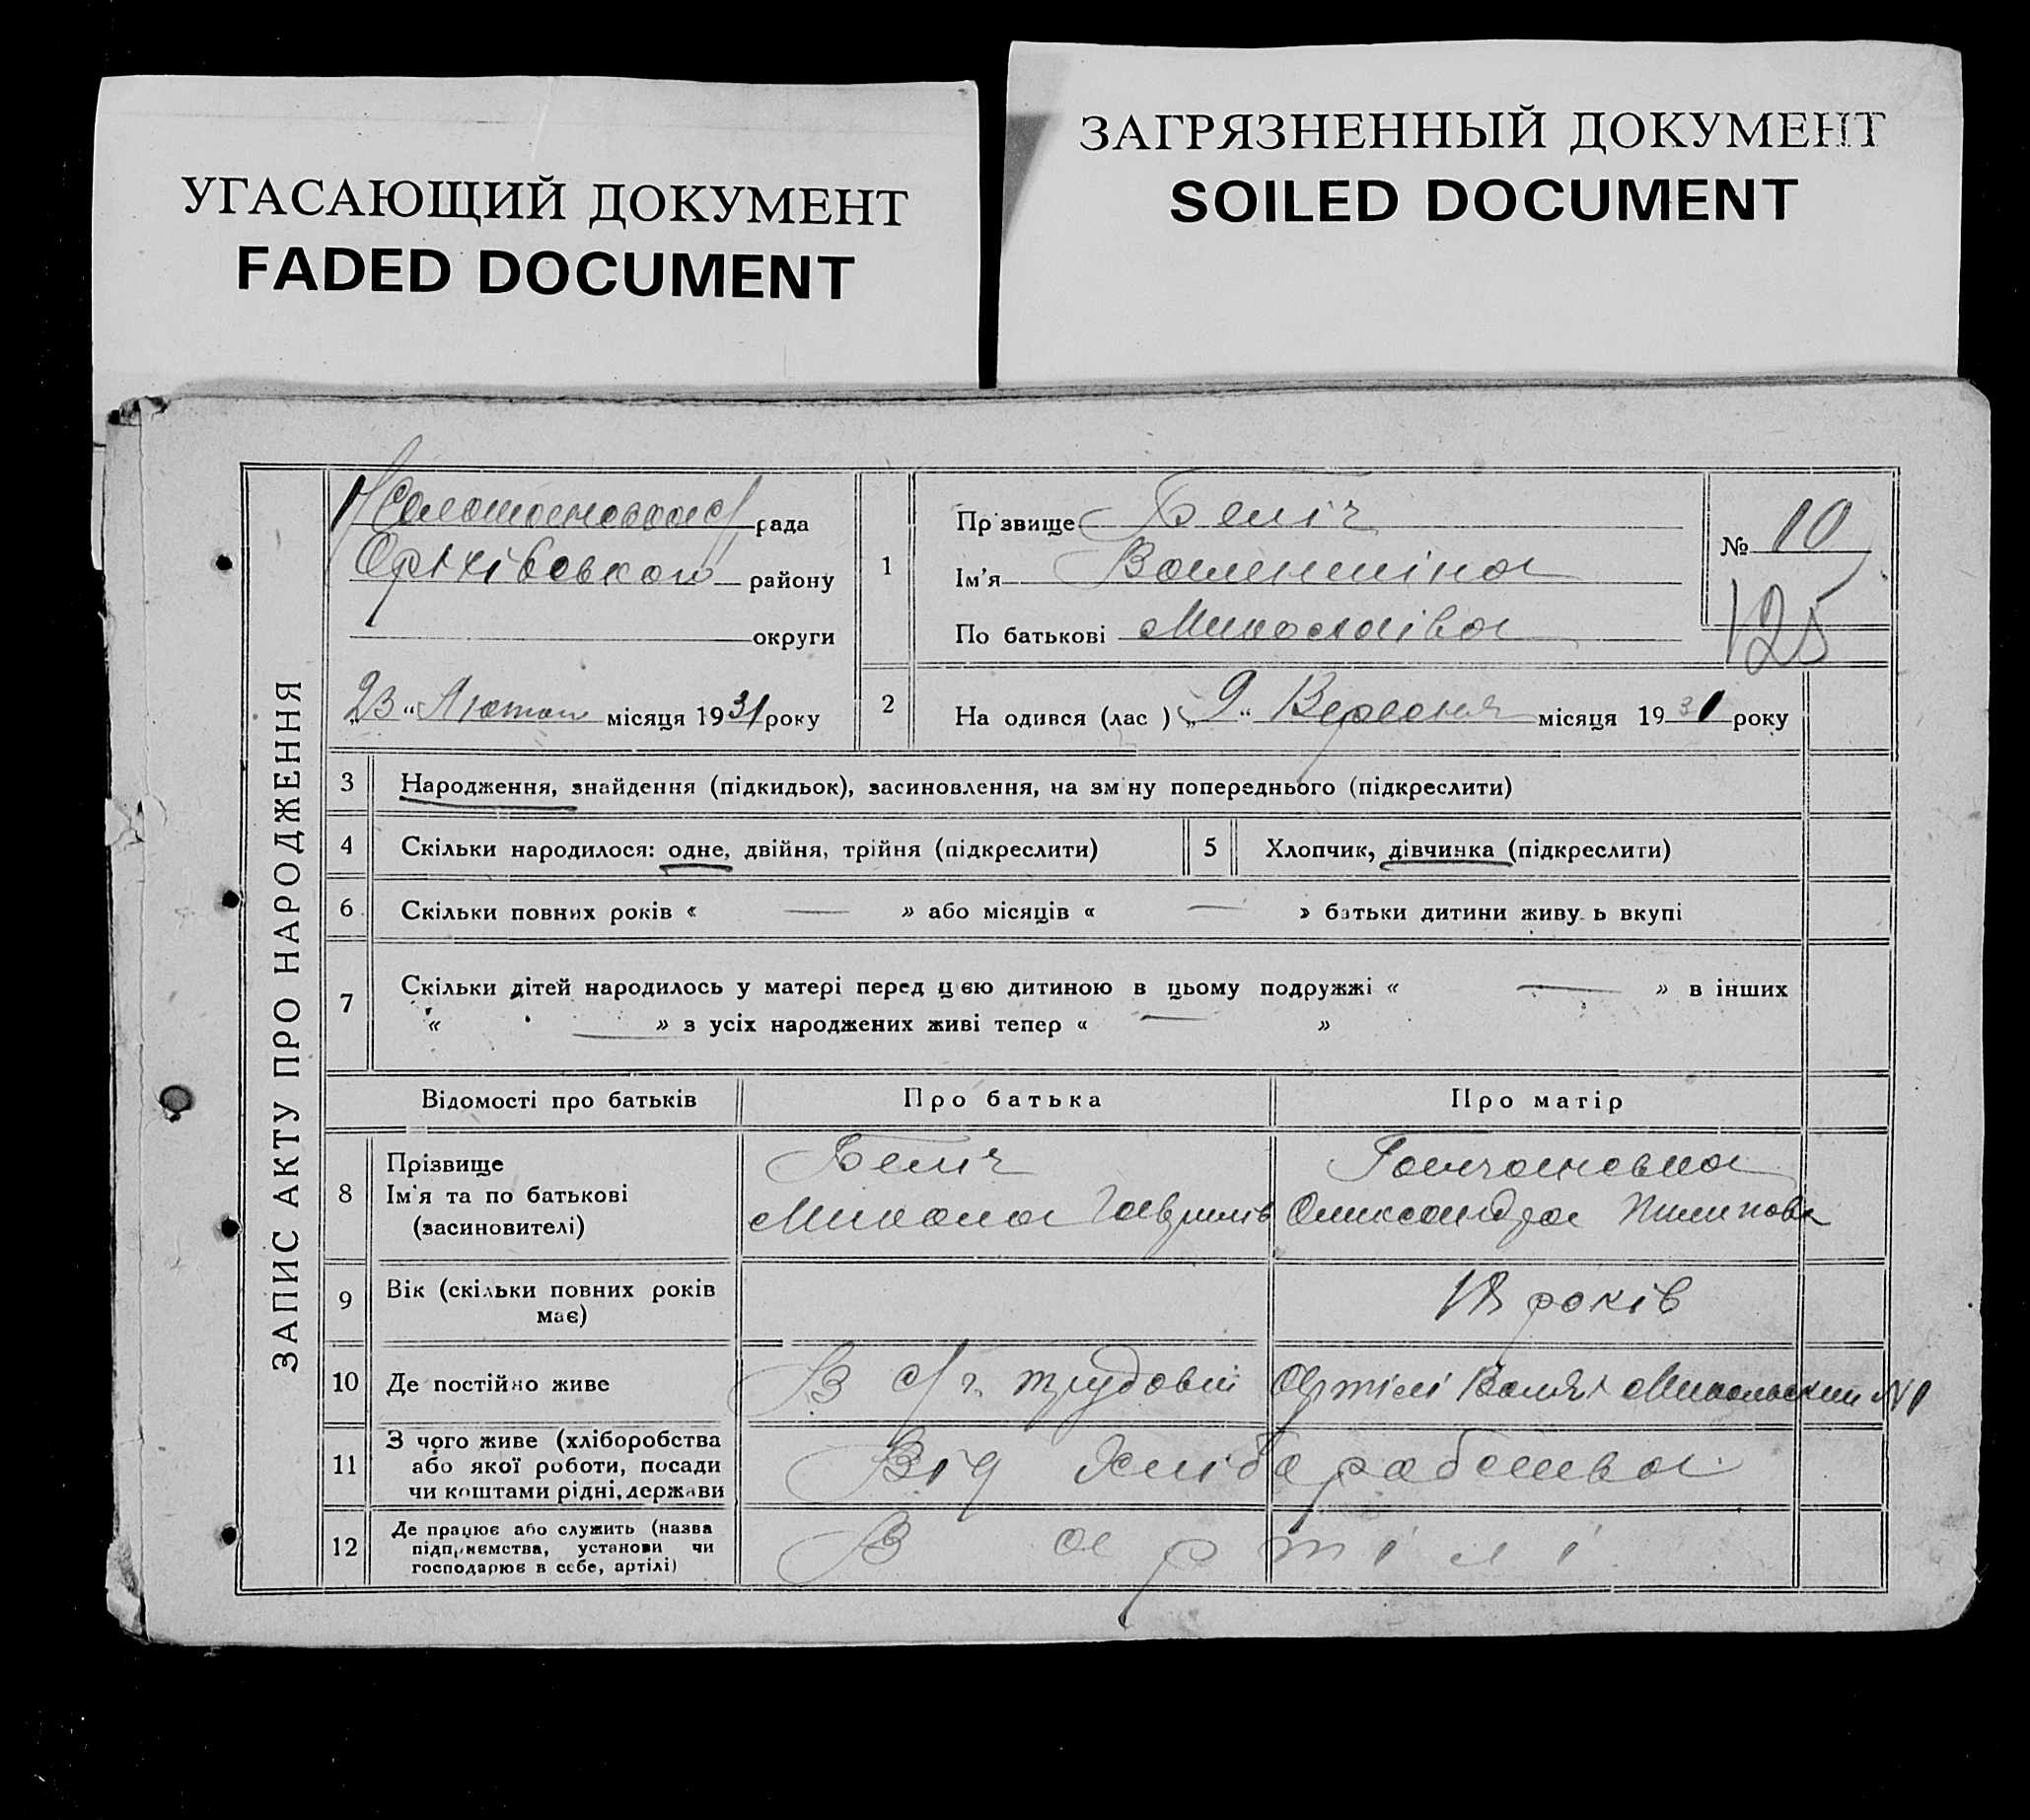 УГАСАЮЩИЙ ДОКУМЕНТ
FADED DOCUMENT
ЗАГРЯЗНЕННЫЙ ДОКУМЕНТ
SOILED DOCUMENT
ЗАПИС АКТУ ПРО НАРОДЖЕННЯ
рада
району
округи
„23“ Лютого місяця 1931 року
1
Пр звище Беліч
Ім'я Валентіна
По батькові Миколаівна
№ 10
125
2
На одився (лас ) „9“ Вересня місяця 1930 року
3 Народження, знайдення (підкидьок), засиновлення, на зм ну попереднього (підкреслити)
4 Скільки народилося: одне, двійня, трійня (підкреслити)
5 Хлопчик, дівчинка (підкреслити)
6 Скільки повних років « — » або місяців « — » батьки дитини живу ь вкупі
7 Скільки дітей народилось у матері перед цією дитиною в цьому подружжі « — » в інших
« — » з усіх народжених живі тепер « — »
Відомості про батьків Про батька Про матір
8 Прізвище
Ім'я та по батькові
(засиновителі)
Беліч
Микола Гаврилів
Олександра Пилипова
9 Вік (скільки повних років
має)
18 років
10 Де постійно живе
В с/г. трудовій Артілі
№1
11 З чого живе (хліборобства
або якої роботи, посади
чи коштами рідні, держави
Від Хліборобства
12 Де працює або служить (назва
підприємства, установи чи
господарює в себе, артілі)
В артілі